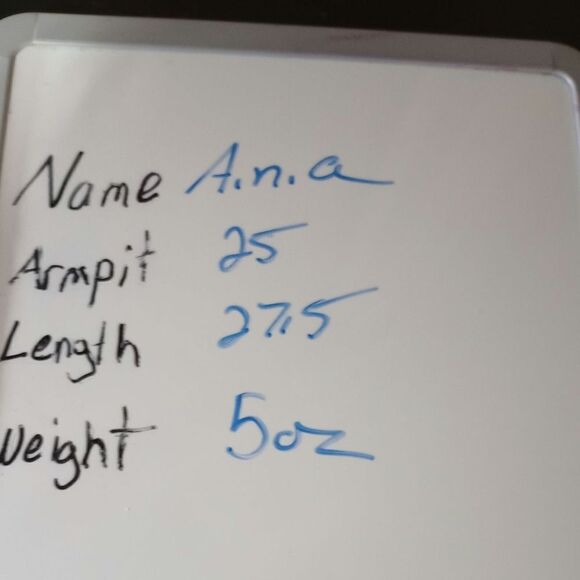 Name A.n.a
Armpit 25
Length 27.5
Weight 5oz